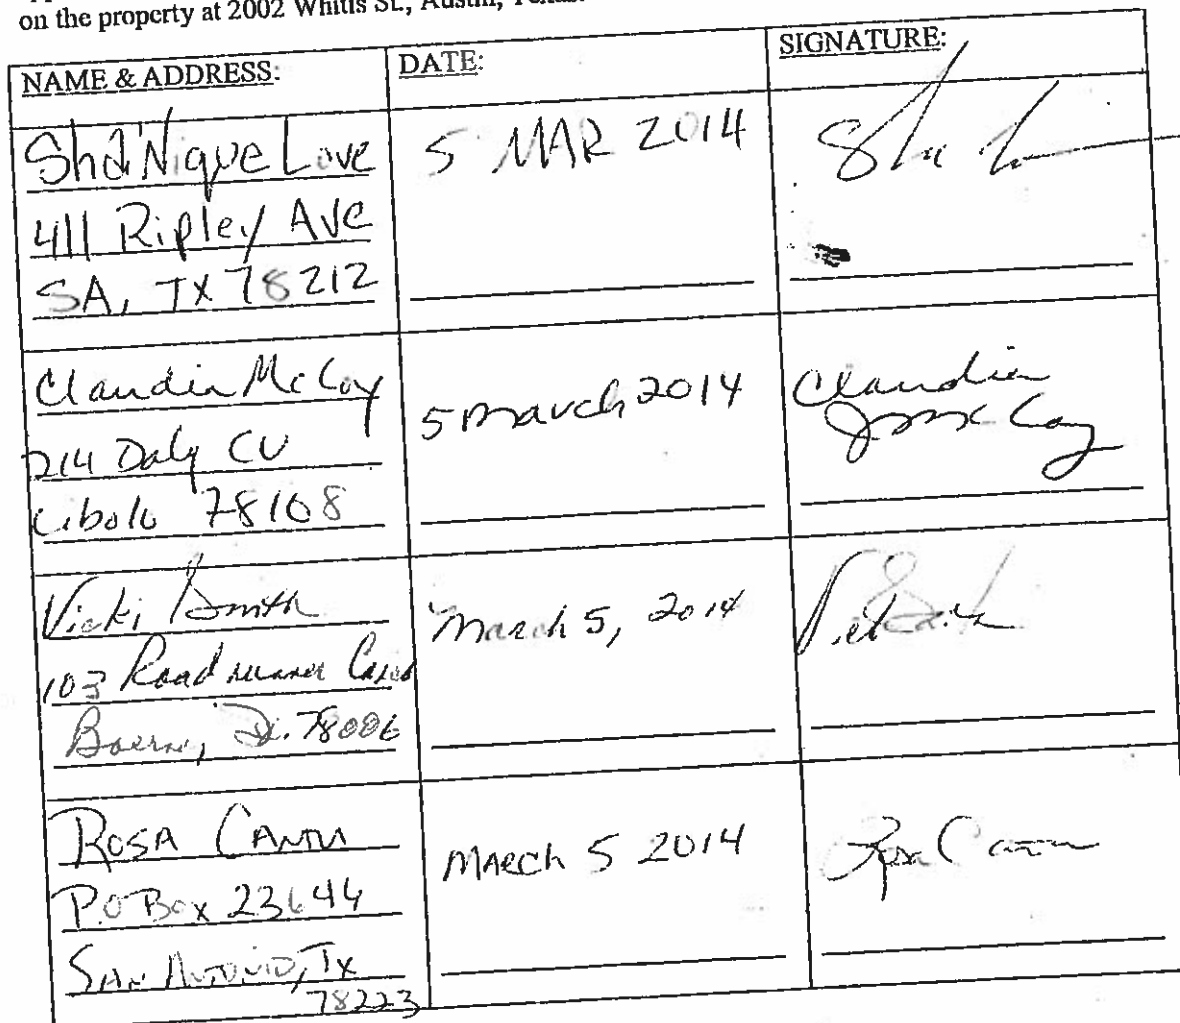 on the property at 2002 Whitis St., Austin, Texas.
NAME & ADDRESS:
DATE:
SIGNATURE:
Sha'Nique Love
411 Ripley Ave
SA, TX 78212
5 MAR 2014
Claudia McCoy
214 Daly CV
Cibolo 78108
5 march 2014
Claudia
J McCoy
Vicki Smith
103 Roadrunner
Boerne, Tx. 78006
March 5, 2014
Rosa Cantu
P.O Box 23644
San Antonio, Tx
78223
March 5 2014
Rosa Cantu